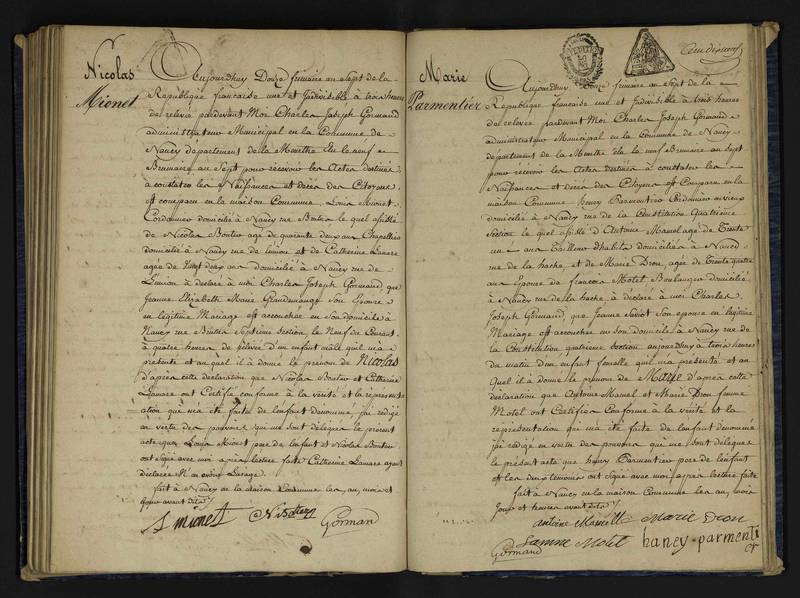 Nicolas
Mionet
Aujourdhuy Douze frimaire an Sept de la
Republique française une et Indivisible à trois heures
de relevée pardevant Moi Charles Joseph Gormand
administrateur Municipal en la Commune de
Nancy departement de la Meurthe Elu le neuf
Brumaire an Sept pour recevoir les Actes destinés
a constater les Naissances et décès des Citoyens
est comparu en la maison Commune Louis Mionet
Cordonnier domicilié à Nancy rue le quel assisté
de Nicolas age de quarante deux ans Chapellier
domicilié à Nancy rue de l'union et de Catherine Lamare
agée de Vingt deux ans domiciliée à Nancy rue de
L'union à declaré à moi Charles Joseph Gormand, que
Jeanne Elizabeth Marie Grandemange Son Epouse
en légitime Mariage est accouchée en Son domicile à
Nancy rue Septième Section le Neuf du Courant
à quatre heures de relevée d'un enfant mâle qu'il m'a
présenté et au quel il a donné le prénom de Nicolas
D'après cette déclaration que Nicolas et Catherine
Lamare ont Certifié conforme à la vérité et la represent
ation qui m'a été faite de l'enfant denommé, j'ai rédigé
en vertu des pouvoirs qui me sont délégués le présent
acte que Louis Mionet pere de l'enfant et Nicolas
ont signé avec moi après lecture faite Catherine Lamare ayant
déclaré N'en avoir L'usage.
fait à Nancy en la maison Commune les an, mois et
jour avant dits
L mionet
Gormand
Marie
Parmentier
Aujourdhuy Douze frimaire an Sept de la
Republique française une et Indivisible à trois heures
de relevée pardevant Moi Charles Joseph Gormand
administrateur Municipal en la Commune de Nancy
departement de la Meurthe Elu le neuf Brumaire an Sept
pour recevoir les Actes destinés a constater les
Naissances et décès des Citoyens est Comparu en la
maison Commune henry Parmentier Cordonnier en vieux
domicilié à Nancy rue de la Constitution Quatrieme
Section le quel assisté d'Antoine Mansel age de Trente
un ans Tailleur d'habits domicilié à Nancy
rue de la hache, et de Marie Drou, agée de Trente quatre
ans Epouse de françois Motel Boulanger domiciliée
à Nancy rue de la hache, à déclaré à moi Charles
Joseph Gormand, que Jeanne son épouse en légitime
Mariage est accouchée en son domicile à Nancy rue de
la Constitution, quatrieme Section aujourdhuy à trois heures
du matin d'un enfant femelle qu'il m'a présenté et au
Quel il a donné le prénom de Marie d'après cette
déclaration que Antoine Mansel et Marie Drou femme
Motel ont Certifiée Conforme à la vérité et la
représentation qui m'a été faite de l'enfant denommé
j'ai rédigé en vertu des pouvoirs qui me sont délégués
le présent acte que henry Parmentier pere de l'enfant
et les deux temoins ont Signé avec moi après lecture faite
fait à Nancy en la maison Commune les an, mois
Jour et heures avant dits
Marie Drou
famme Motel
haney parmenti
er
Gormand